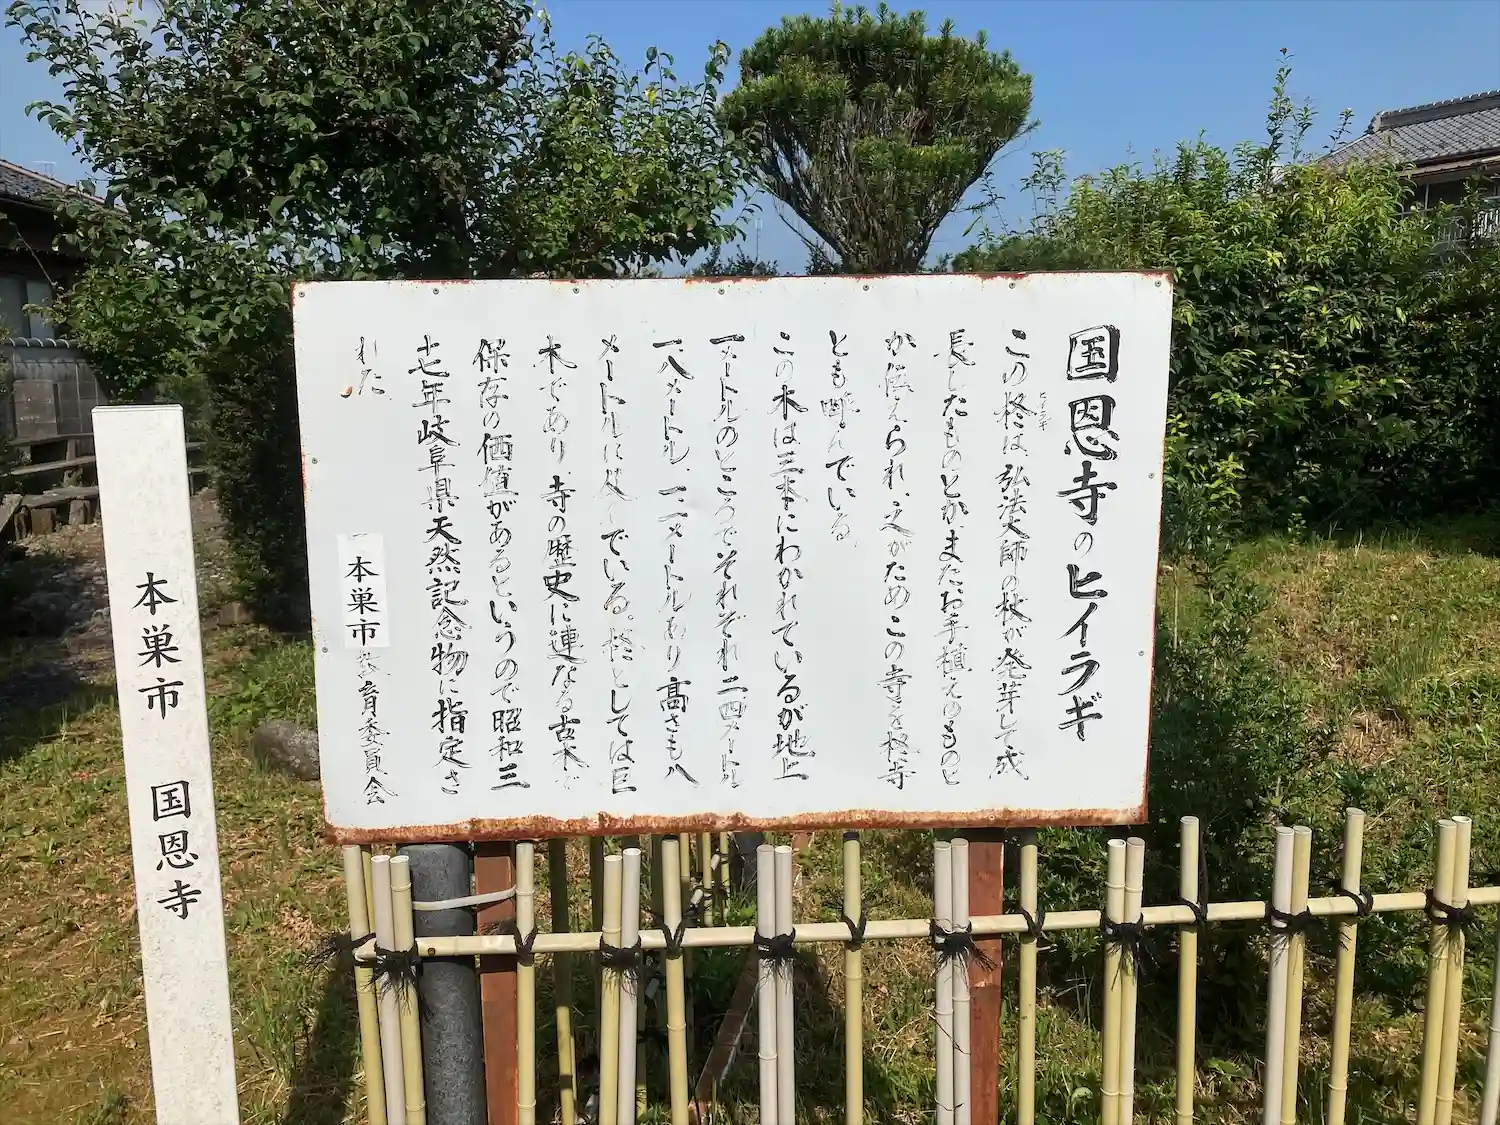 国恩寺のヒイラギ
この柊は弘法大師の杖が発芽して成
ヒイラギ
長したものとか、またお手植えのものと
か伝えられ、之がためこの寺を柊寺
とも呼んでいる。
この木は三本にわかれているが地上
一メートルのところでそれぞれ二四メートル
一八メートル、一二メートルあり高さも八
メートルに及んでいる。柊としては巨
木であり、寺の歴史に連なる古木で
保存の価値があるというので昭和三
十七年岐阜県天然記念物に指定さ
れた
本巣市教育委員会
本巣市 国恩寺